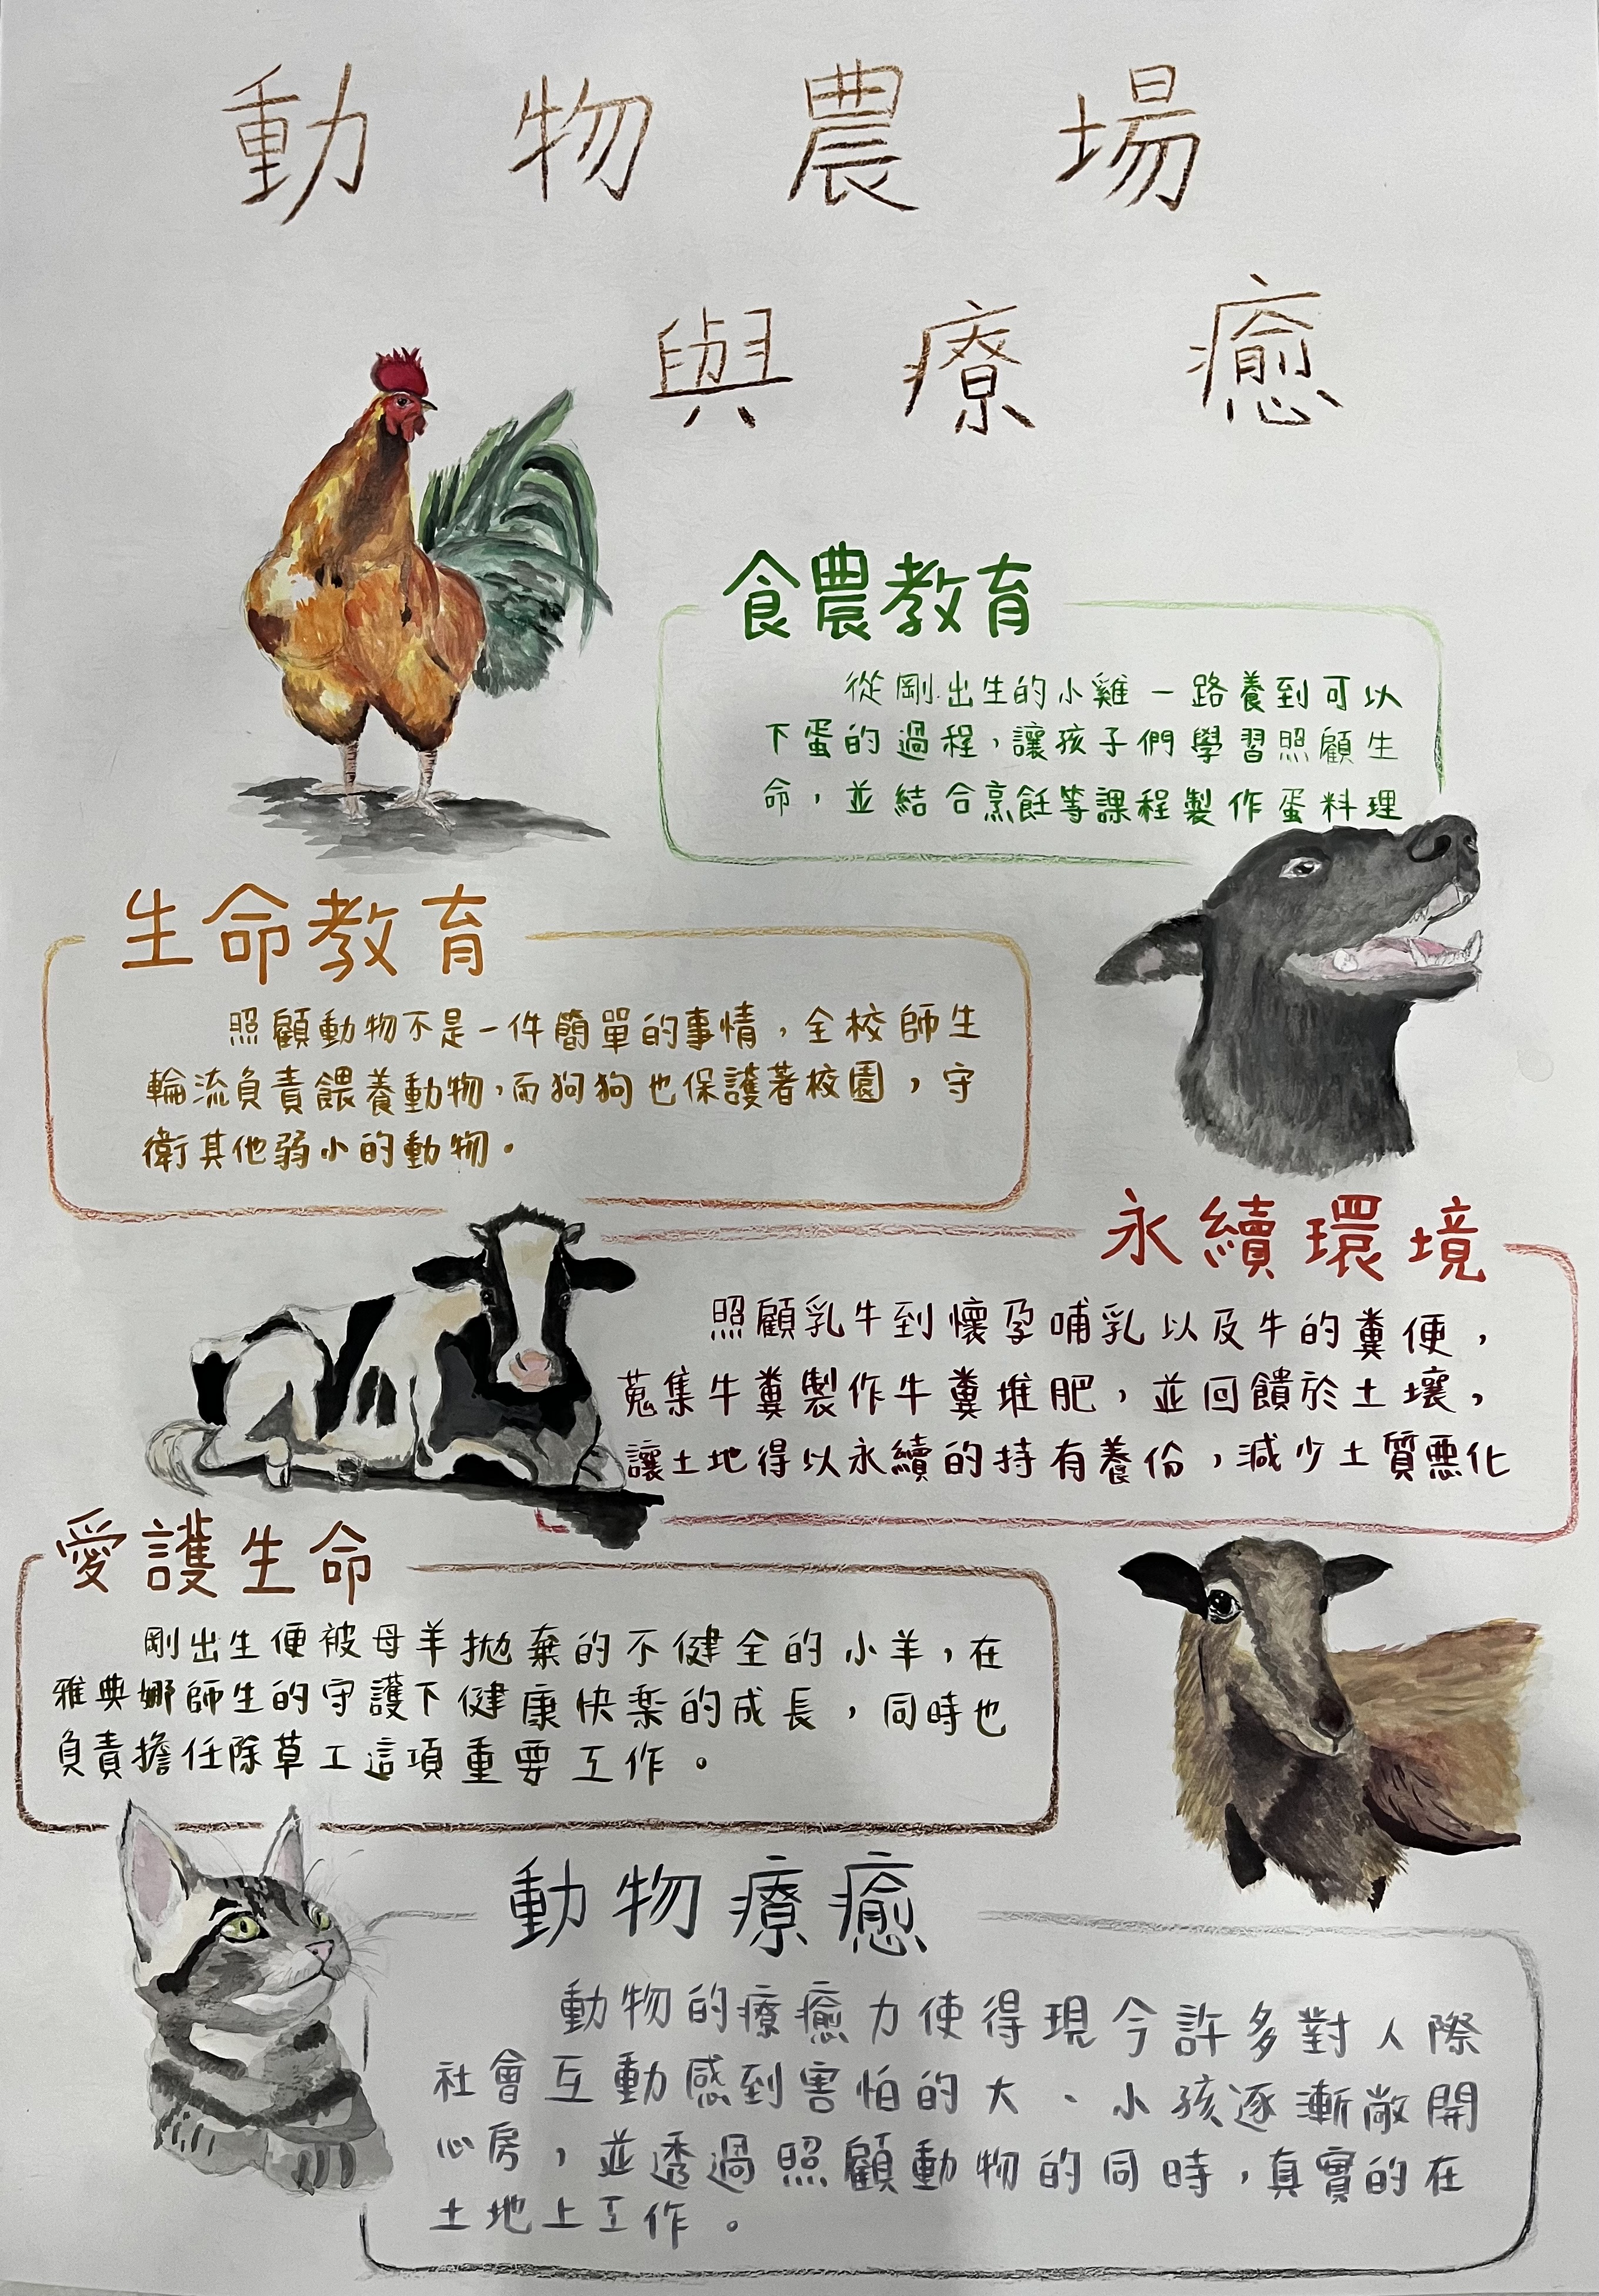 動物農場
與療癒
食農教育
從剛出生的小雞一路養到可以
下蛋的過程，讓孩子們學習照顧生
命，並結合烹飪等課程製作蛋料理
生命教育
照顧動物不是一件簡單的事情，全校師生
輪流負責餵養動物，而狗狗也保護著校園，守
衛其他弱小的動物。
永續環境
照顧乳牛到懷孕哺乳以及牛的糞便，
蒐集牛糞製作牛糞堆肥，並回饋於土壤，
讓土地得以永續的持有養份，減少土質惡化
愛護生命
剛出生便被母羊拋棄的不健全的小羊，在
雅典娜師生的守護下健康快樂的成長，同時也
負責擔任除草工這項重要工作。
動物療癒
動物的療癒力使得現今許多對人際
社會互動感到害怕的大、小孩逐漸敞開
心房，並透過照顧動物的同時，真實的在
土地上工作。